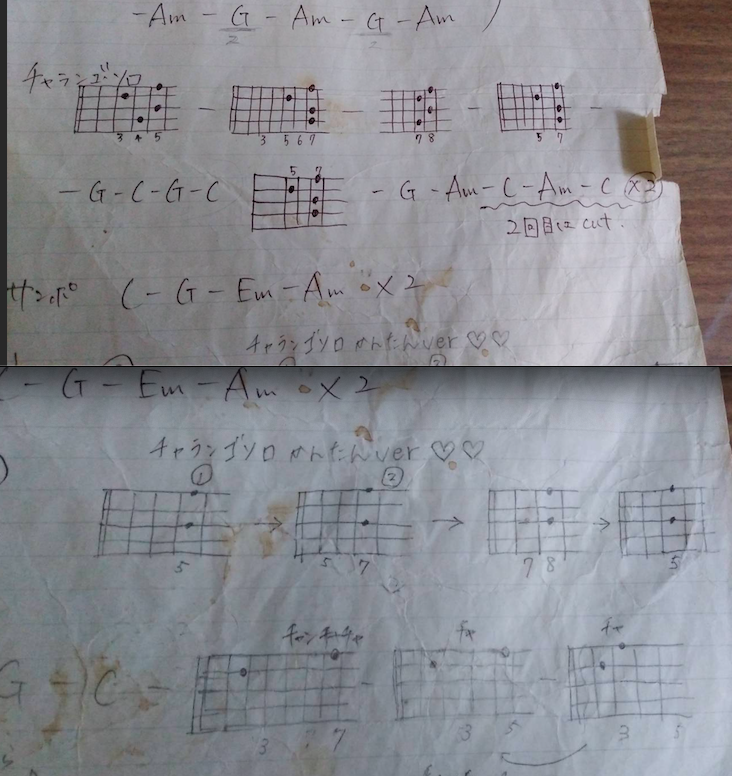 -Am - G - Am - G - Am
2 2
チャランゴソロ
- - - -
3 4 5 3 5 6 7 7 8 5 7
5 7
- G - C - G - C - G - Am - C - Am - C ×2
2回目はcut.
サンポ C - G - Em - Am ×2
チャランゴソロ かんたんver ♡♡
- G - Em - Am ×2
チャランゴソロ かんたんver ♡♡
① ②
→ → →
5 5 7 7 8 5
チャンチャチャ チャ チャ
G - C - - -
3 7 3 5 3 5